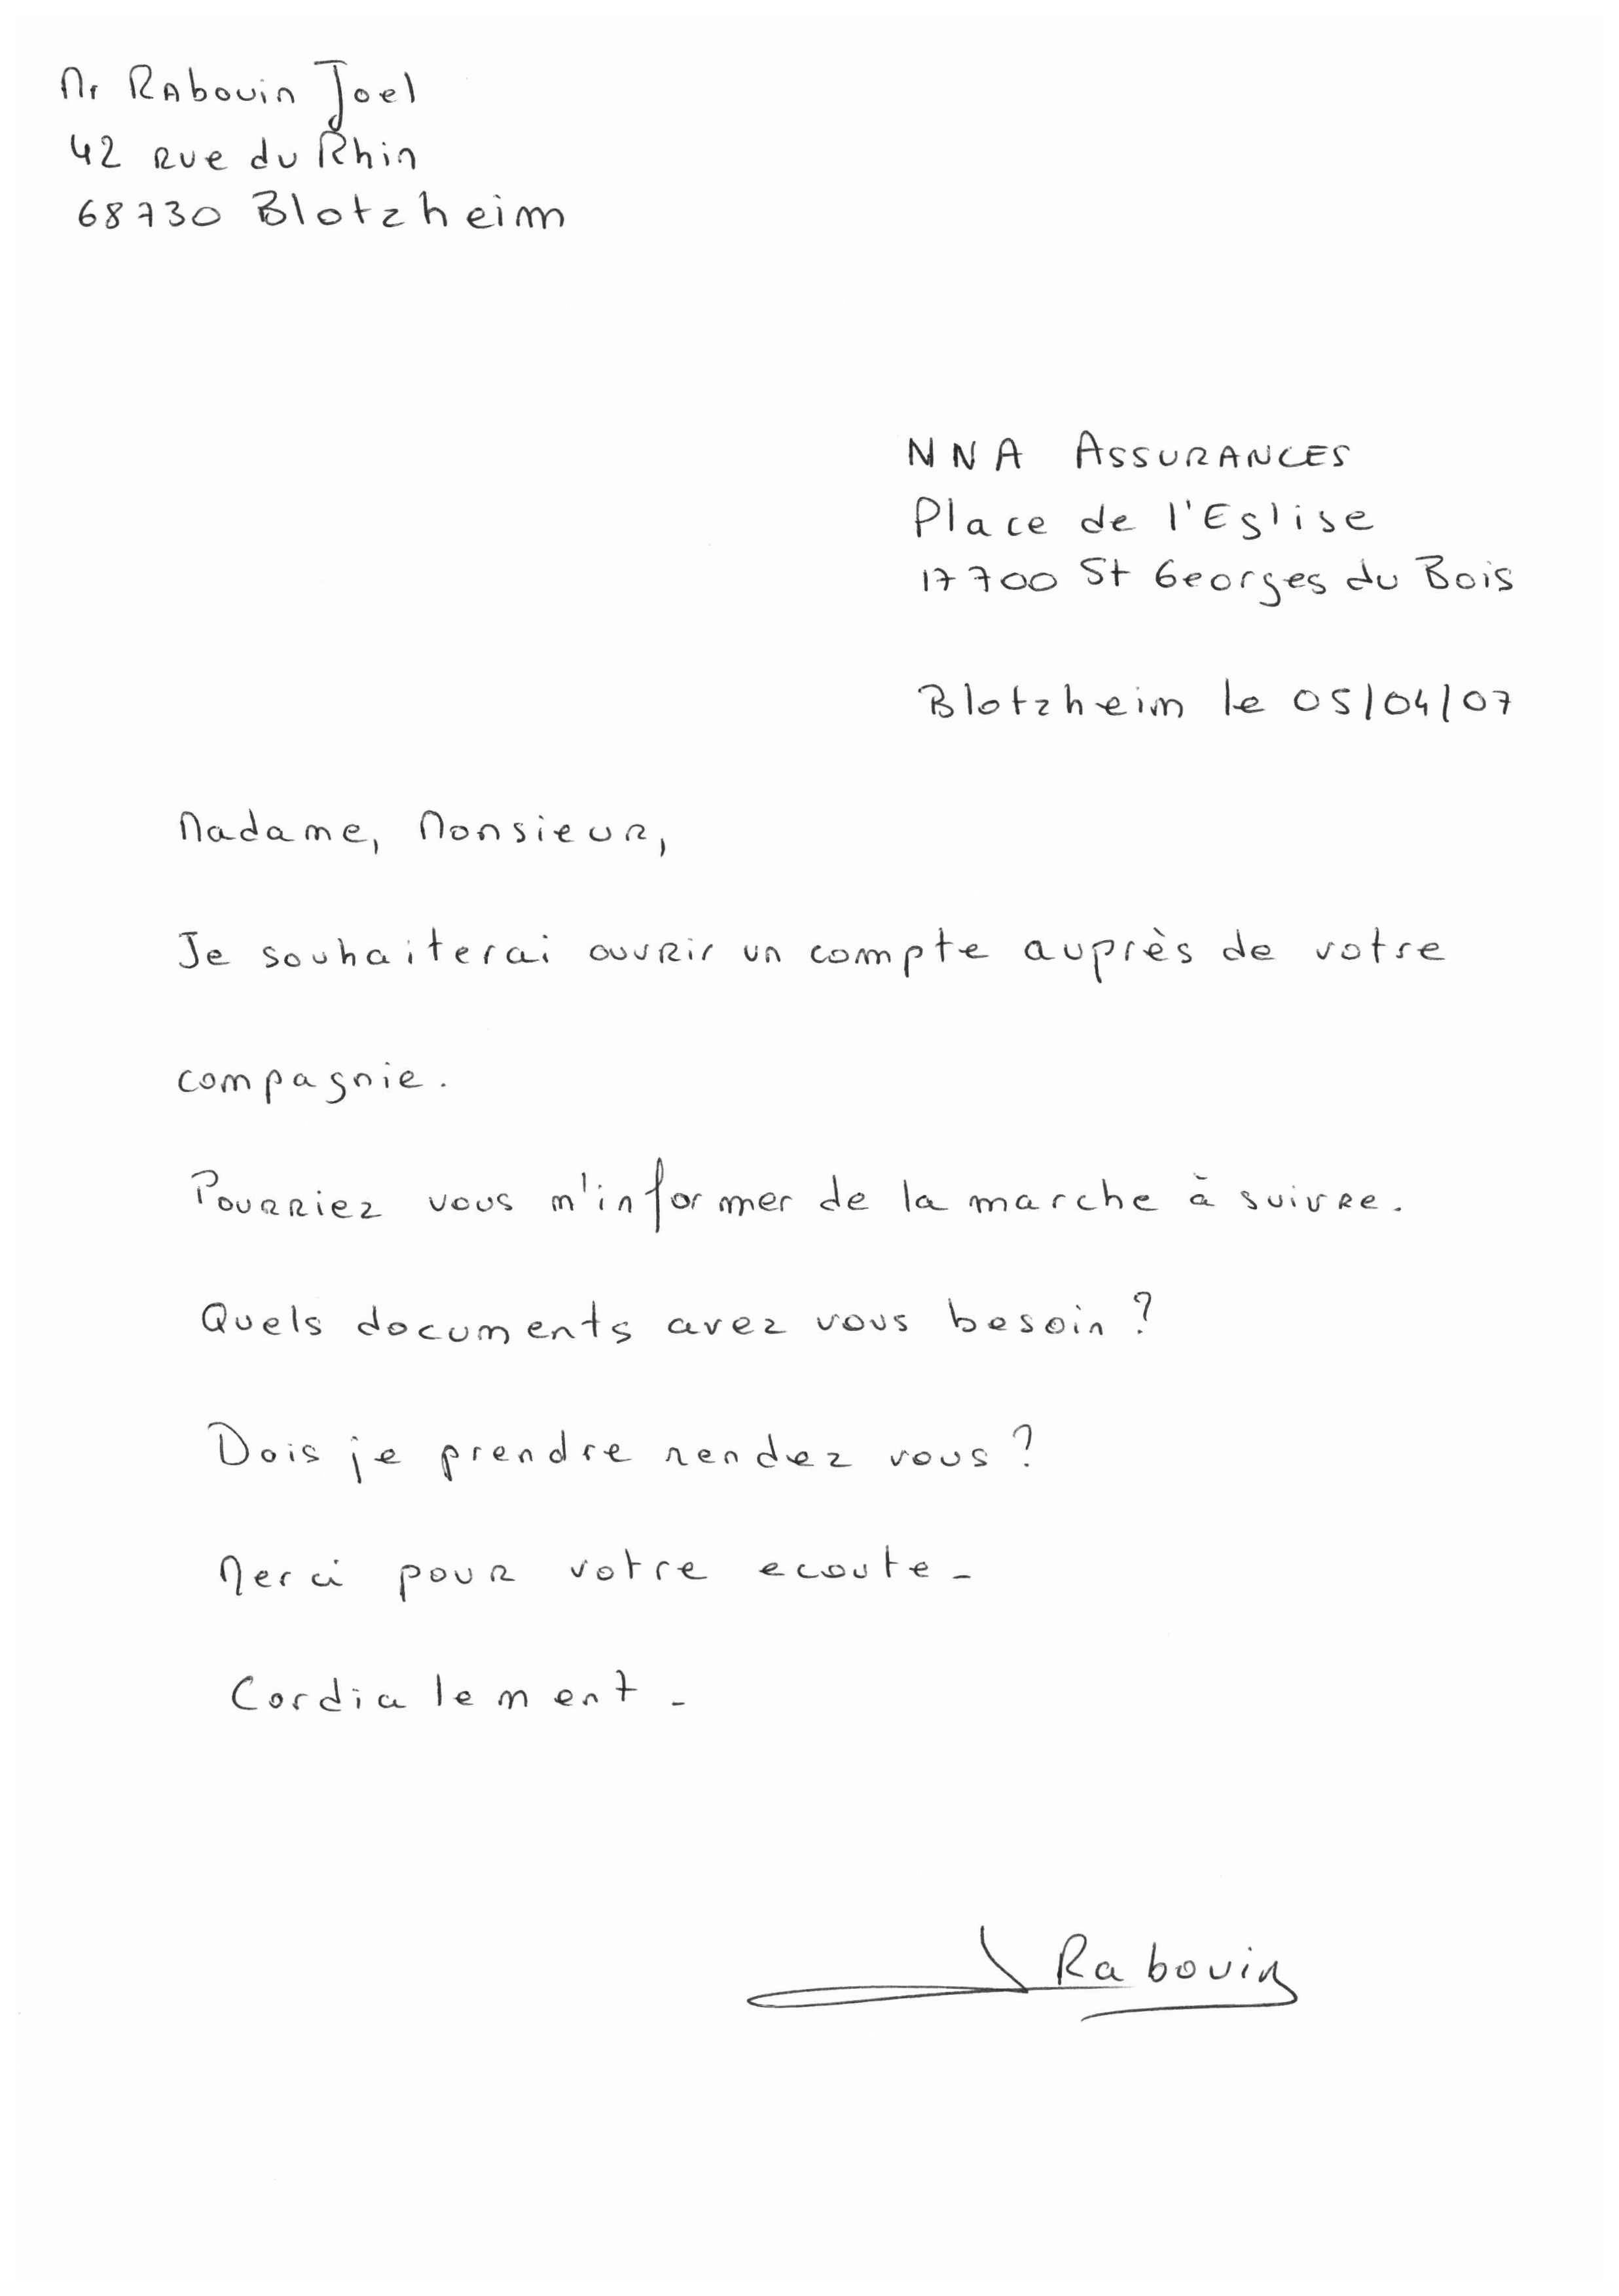 Mr Rabouin Joel
42 rue du Rhin
68730 Blotzheim
NNA ASSURANCES
Place de l'Eglise
17700 St Georges du Bois
Blotzheim le 05/04/07
Madame, Monsieur,
Je souhaiterai ouvrir un compte auprès de votre
compagnie.
Pourriez vous m'informer de la marche à suivre.
Quels documents avez vous besoin ?
Dois je prendre rendez vous ?
Merci pour votre ecoute -
Cordialement -
Rabouin